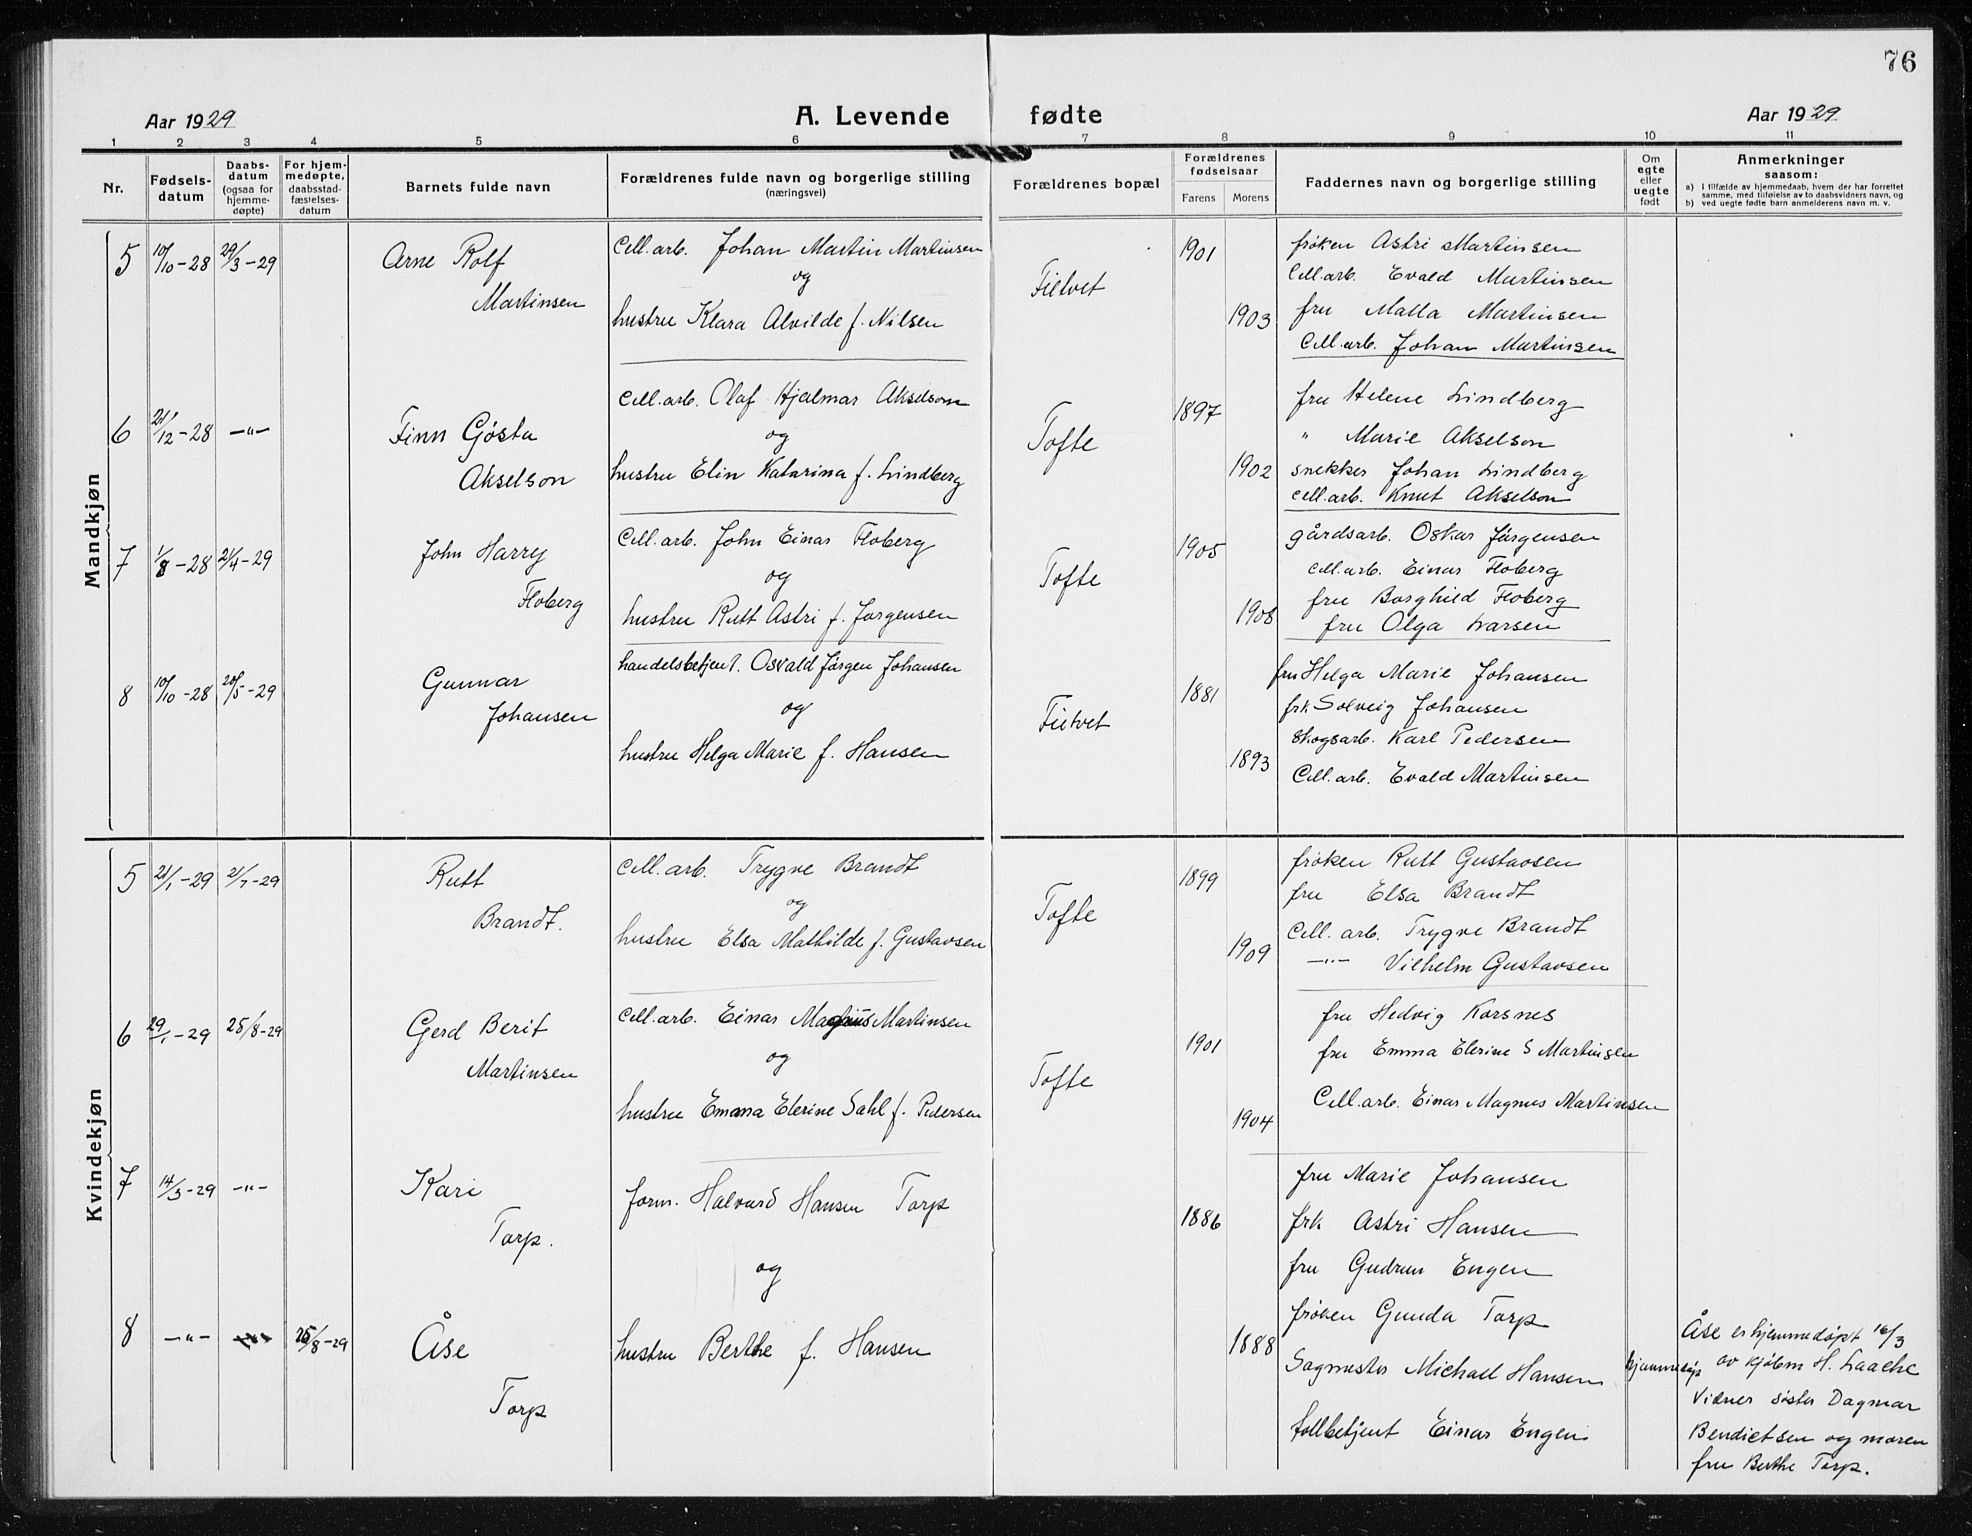 76
Aar 1929
A. Levende fødte
Aar 1929
1 2 3 4 5 6 7 8 9 10 11
Nr.
Fødsels-
datum
Daabs-
datum
(ogsaa for
hjemme-
døpte)
For hjem-
medøpte,
daabsstad-
fæstelses-
datum
Barnets fulde navn
Forældrenes fulde navn og borgerlige stilling
(næringsvei)
Forældrenes bopæl
Forældrenes
fødselsaar
Farens Morens
Faddernes navn og borgerlige stilling
Om
egte
eller
uegte
født
Anmerkninger
saasom:
a) i tilfælde av hjemmedaab, hvem der har forrettet
samme, med tilføielse av to daabsvidners navn, og
b) ved uegte fødte barn anmelderens navn m. v.
Mandkjøn
5 10/10-28 29/3-29
Arne Rolf
Martinsen
Cell.arb. Johan Martin Martinsen
og
hustru Klara Alvilde f. Nilsen
Filtvet
1901
1903
frøken Astri Martinsen
Cell.arb. Evald Martinsen
fru Malla Martinsen
Cell.arb. Johan Martinsen
6 21/12-28 -"-
Finn Gösta
Akselson
Cell.arb. Olaf Hjalmar Akselson
og
hustru Elin Katarina f. Lindberg
Tofte
1897
1902
fru Helene Lindberg
" Marie Akselson
snekker Johan Lindberg
Cell.arb. Knut Akselson
7 1/8-28 21/4-29
John Harry
Floberg
Cell.arb. John Einar Floberg
og
hustru Rutt Astri f. Jørgensen
Tofte
1905
1908
gårdsarb. Oskar Jørgensen
Cell.arb. Einar Floberg
fru Borghild Floberg
fru Olga Larsen
8 10/10-28 20/5-29
Gunnar
Johansen
handelsbetjent. Osvald Jørgen Johansen
og
hustru Helga Marie f. Hansen
Filtvet
1881
1893
fru Helga Marie Johansen
frk Solveig Johansen
skogsarb. Karl Pedersen
Cell.arb. Evald Martinsen
Kvindekjøn
5 21/1-29 21/7-29
Rutt
Brandt.
Cell.arb. Trygve Brandt
og
hustru Elsa Mathilde f. Gustavsen
Tofte
1899
1909
frøken Rutt Gustavsen
fru Elsa Brandt
Cell. arb. Trygve Brandt
-"- Vilhelm Gustavsen
6 29/1-29 25/8-29
Gerd Berit
Martinsen
Cell.arb. Einar Magnus Martinsen
og
hustru Emma Elerine Sahl f. Pedersen
Tofte
1901
1904
fru Hedvig Korsnes
fru Emma Elerine S Martinsen
Cell.arb. Einar Magnus Martinsen
7 14/3-29 -"-
Kari
Torp.
form. Halvard Hansen Torp
og
1886
fru Marie Johansen
frk Astri Hansen
fru Gudrun Engen
8 -"- 25/8-29
Åse
Torp
hustru Berthe f. Hansen
1888
frøken Gunda Torp
Sagmester Michael Hansen
tollbetjent Einar Engen
hjemmedøp
Åse er hjemmedøpt 16/3
av kjøbm H. Laache
Vidner søster Dagmar
Bendictsen og moren
fru Berthe Torp.